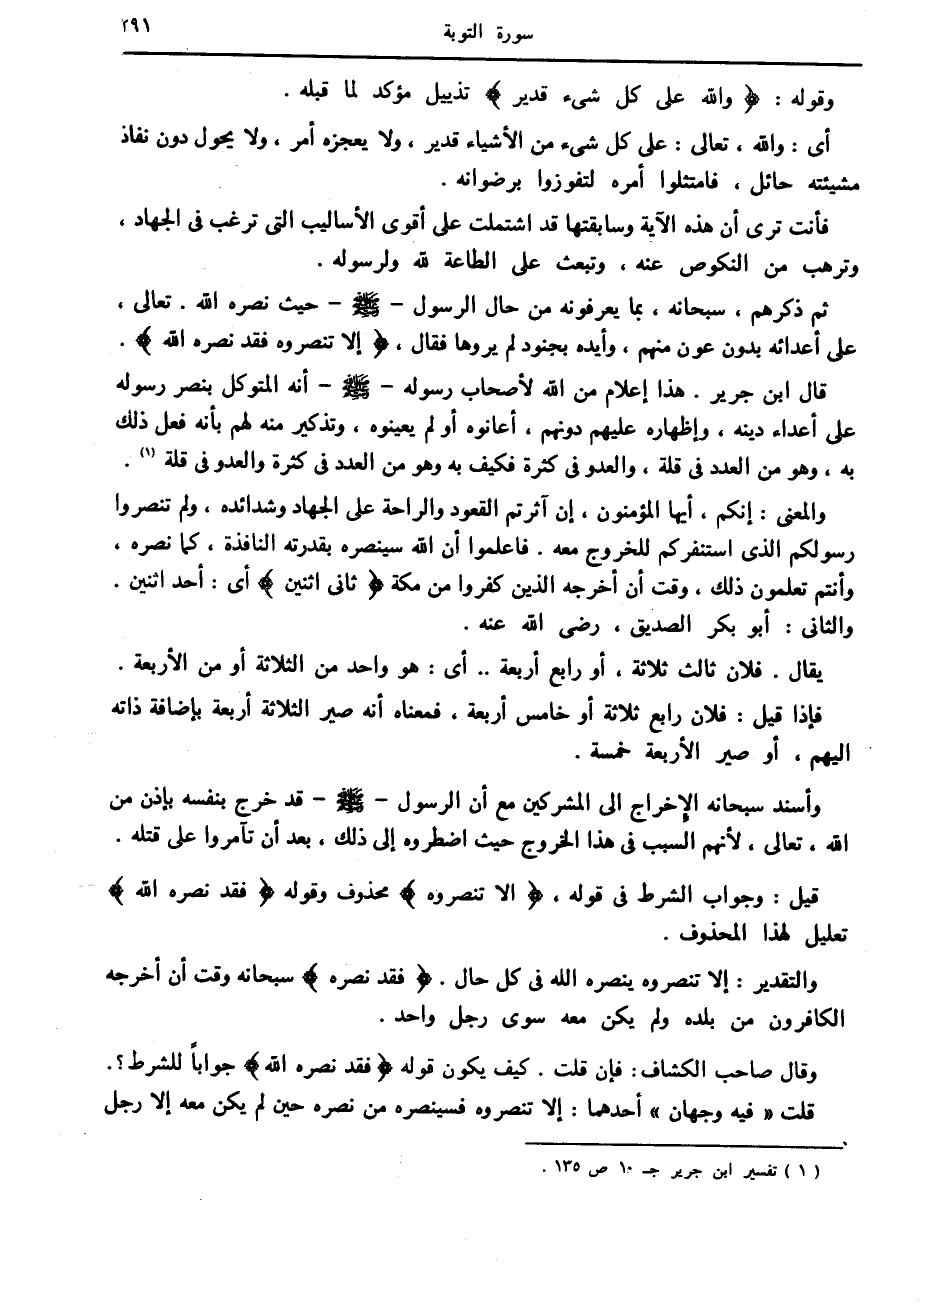 سورة التوبة ٢٩١
وقوله : ﴿ والله على كل شىء قدير ﴾ تذييل مؤكد لما قبله .
أى : والله ، تعالى : على كل شىء من الأشياء قدير ، ولا يعجزه أمر ، ولا يحول دون نفاذ
مشيئته حائل ، فامتثلوا أمره لتفوزوا برضوانه .
فأنت ترى أن هذه الآية وسابقتها قد اشتملت على أقوى الأساليب التى ترغب فى الجهاد ،
وترهب من النكوص عنه ، وتبعث على الطاعة لله ولرسوله .
ثم ذكرهم ، سبحانه ، بما يعرفونه من حال الرسول - ﷺ - حيث نصره الله . تعالى ،
على أعدائه بدون عون منهم ، وأيده بجنود لم يروها فقال ، ﴿ إلا تنصروه فقد نصره الله ﴾ .
قال ابن جرير . هذا إعلام من الله لأصحاب رسوله - ﷺ - أنه المتوكل بنصر رسوله
على أعداء دينه ، وإظهاره عليهم دونهم ، أعانوه أو لم يعينوه ، وتذكير منه لهم بأنه فعل ذلك
به ، وهو من العدد فى قلة ، والعدو فى كثرة فكيف به وهو من العدد فى كثرة والعدو فى قلة (١) .
والمعنى : إنكم ، أيها المؤمنون ، إن آثرتم القعود والراحة على الجهاد وشدائده ، ولم تنصروا
رسولكم الذى استنفركم للخروج معه . فاعلموا أن الله سينصره بقدرته النافذة ، كما نصره ،
وأنتم تعلمون ذلك ، وقت أن أخرجه الذين كفروا من مكة ﴿ ثانى اثنين ﴾ أى : أحد اثنين .
والثانى : أبو بكر الصديق ، رضى الله عنه .
يقال . فلان ثالث ثلاثة ، أو رابع أربعة .. أى : هو واحد من الثلاثة أو من الأربعة .
فإذا قيل : فلان رابع ثلاثة أو خامس أربعة ، فمعناه أنه صير الثلاثة أربعة بإضافة ذاته
اليهم ، أو صير الأربعة خمسة .
وأسند سبحانه الإخراج الى المشركين مع أن الرسول - ﷺ - قد خرج بنفسه بإذن من
الله ، تعالى ، لأنهم السبب فى هذا الخروج حيث اضطروه إلى ذلك ، بعد أن تآمروا على قتله .
قيل : وجواب الشرط فى قوله ، ﴿ الا تنصروه ﴾ محذوف وقوله ﴿ فقد نصره الله ﴾
تعليل لهذا المحذوف .
والتقدير : إلا تنصروه ينصره الله فى كل حال . ﴿ فقد نصره ﴾ سبحانه وقت أن أخرجه
الكافرون من بلده ولم يكن معه سوى رجل واحد .
وقال صاحب الكشاف : فإن قلت . كيف يكون قوله ﴿ فقد نصره الله ﴾ جواباً للشرط ؟.
قلت « فيه وجهان » أحدهما : إلا تنصروه فسينصره من نصره حين لم يكن معه إلا رجل
( ١ ) تفسير ابن جرير جـ ١٠ ص ١٣٥ .